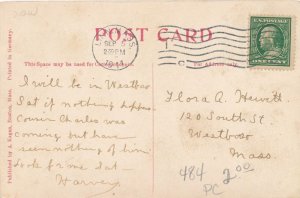 POST CARD
This Space may be used for Correspondence.
For Address only.
Printed in Germany.
Published by A. Kagan, Boston, Mass.
SEP
230PM
U.S. POSTAGE
ONE CENT
I will be in Westboro
Sat if nothing happens.
Cousin Charles was
coming but have
seen nothing of him
Look for me Sat
Harvey
Flora A. Hewett
120 South St
Westboro
Mass.
484
PC
2.00